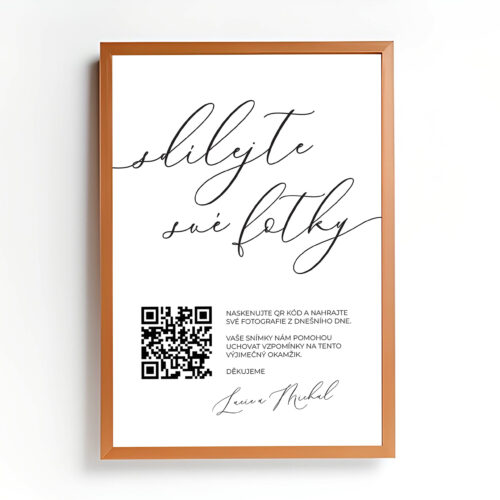 sdílejte
své fotky
NASKENUJTE QR KÓD A NAHRAJTE
SVÉ FOTOGRAFIE Z DNEŠNÍHO DNE.
VAŠE SNÍMKY NÁM POMOHOU
UCHOVAT VZPOMÍNKY NA TENTO
VÝJIMEČNÝ OKAMŽIK.
DĚKUJEME
Lucie a Michal